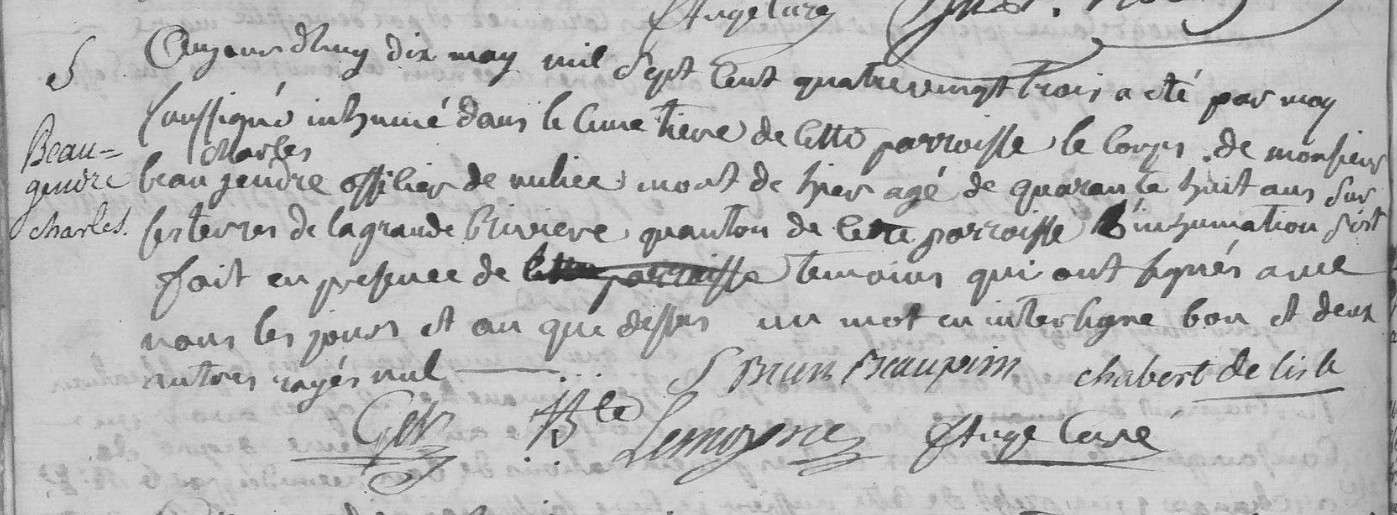 f Ange Curé
S
Aujourdhuy dix may mil Sept Cent quatrevingt trois a été par moy
Beau=
Soussigné inhumé dans le Cimetiere de Cette parroisse le Corps de monsieur
Charles
gendre
beaugendre officier de milice mort de hier agé de quarante huit ans Sur
charles.
Ses terres de la grande Riviere quanton de Cette parroisse L'inhumation S'est
fait en presence de temoins qui ont signés avec
nous les jours et an que dessus un mot en interligne bon et deux
autres rayés nul
S Brun Beaupein chabert de lisle
Bte Lemoyne f Ange Curé